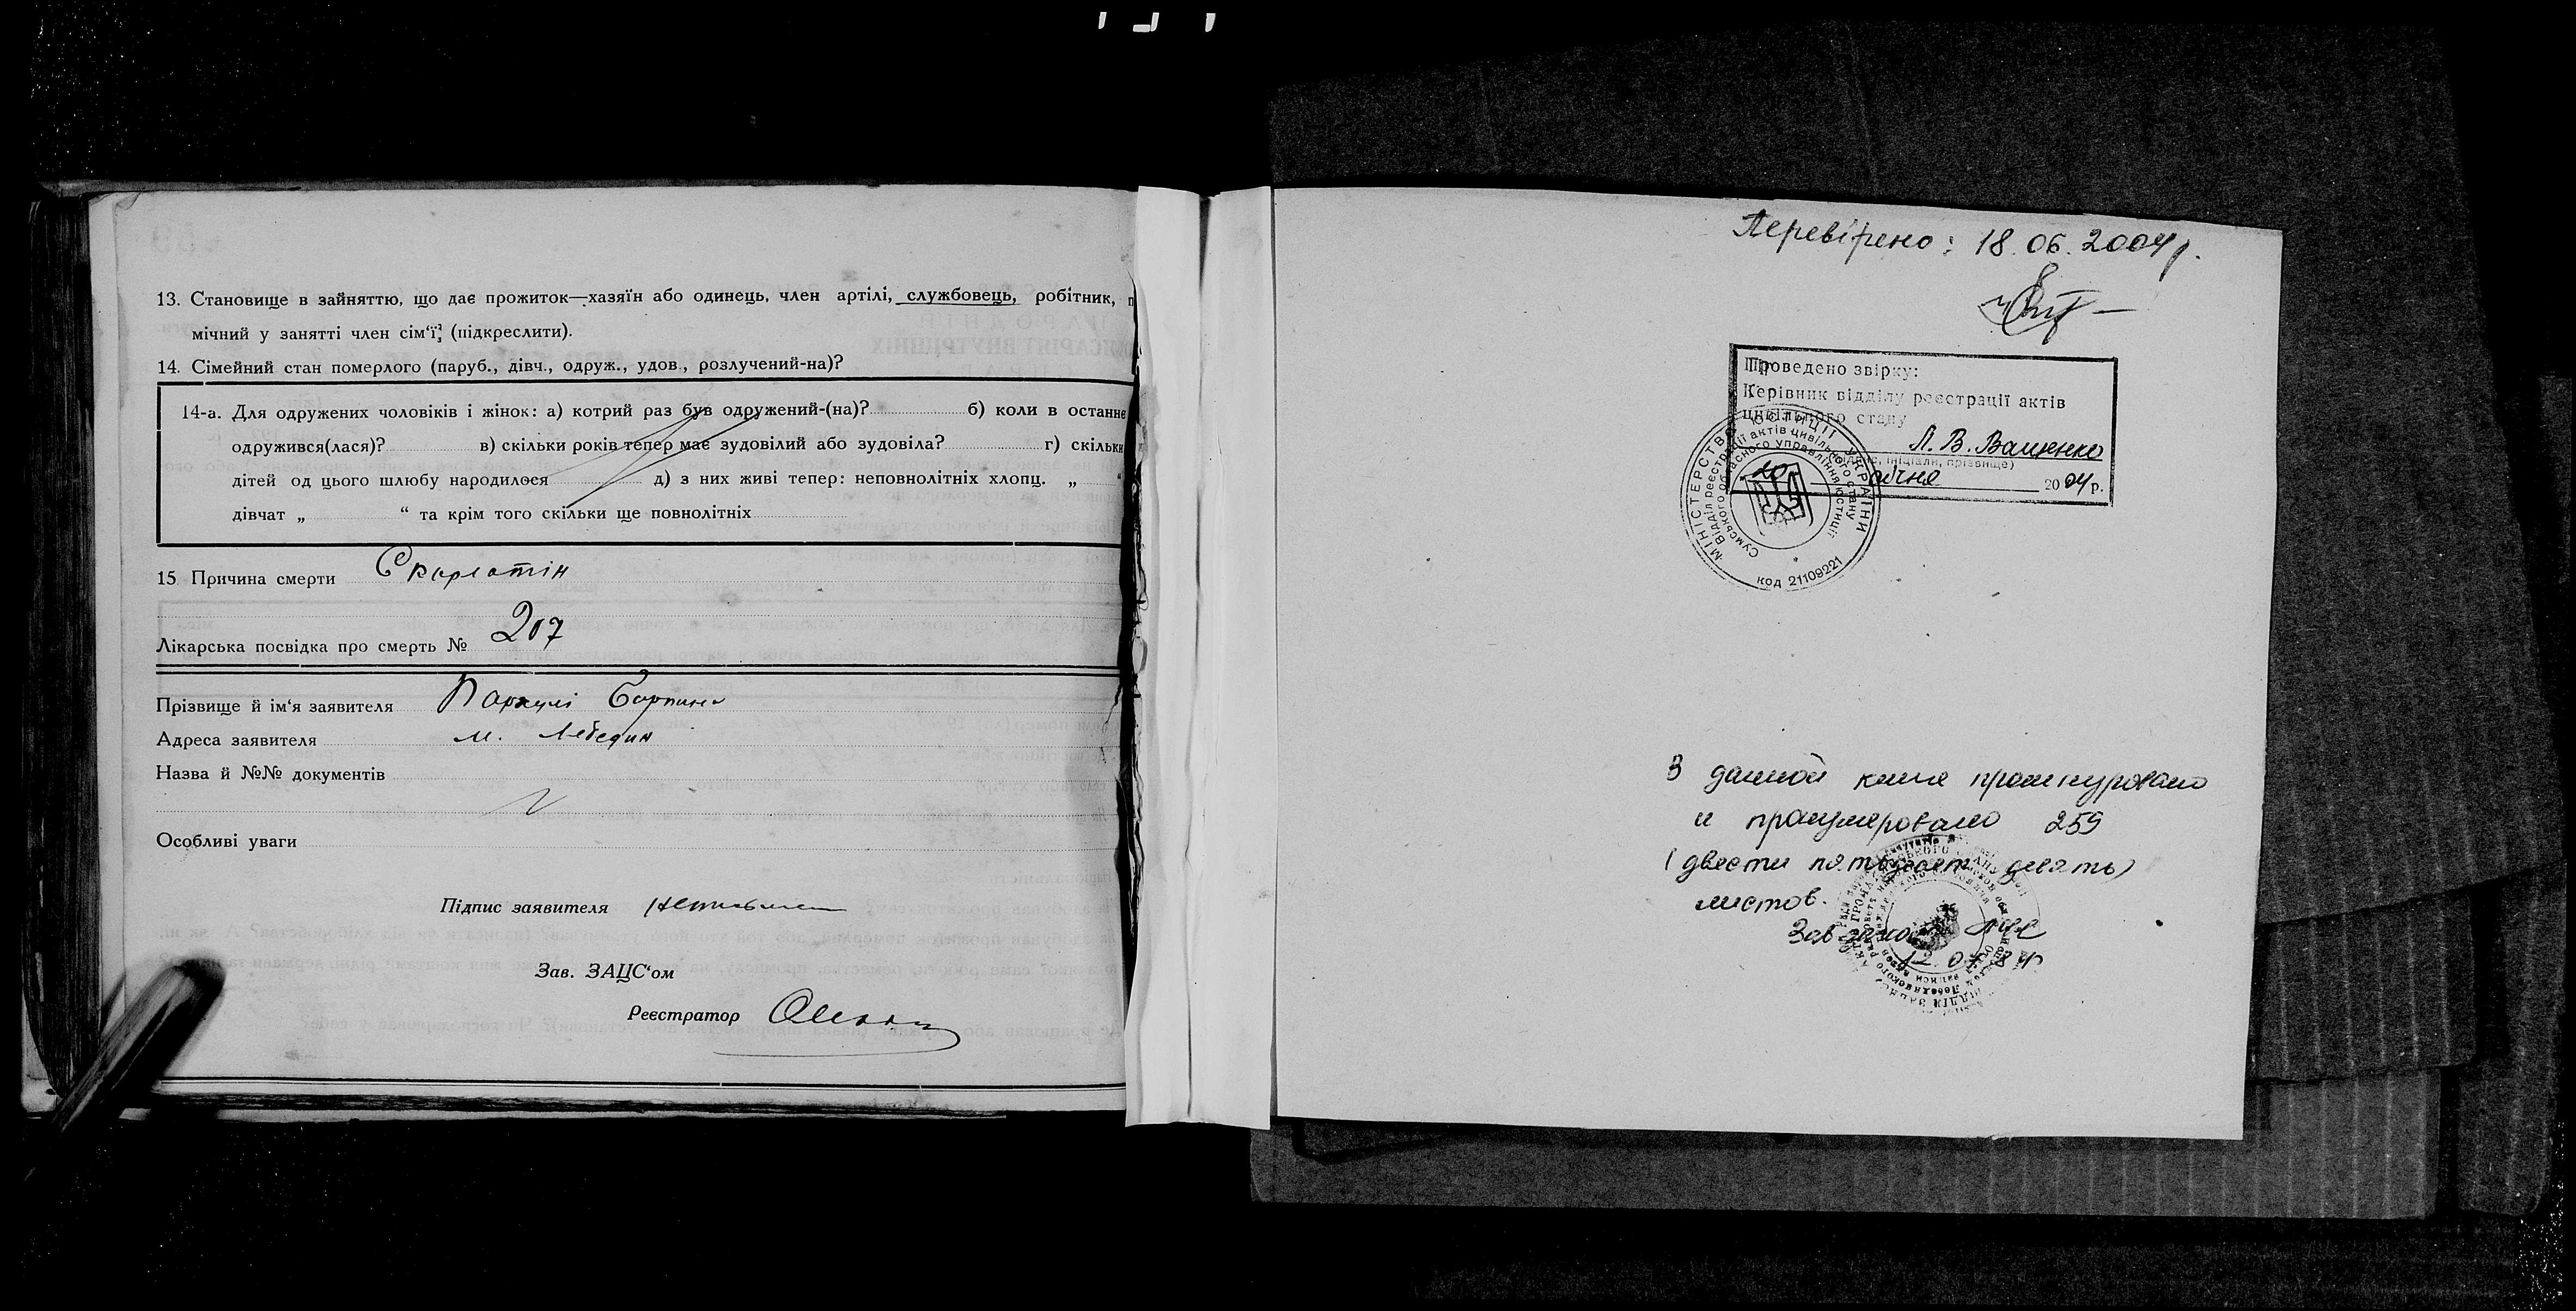 13. Становище в зайняттю, що дає прожиток—хазяїн або одинець, член артілі, службовець, робітник, п
мічний у занятті член сім‘ї, (підкреслити).
14. Сімейний стан померлого (паруб., дівч., одруж., удов., розлучений-на)?
14-а. Для одружених чоловіків і жінок: а) котрий раз був одружений-(на)? б) коли в останнє
одружився(лася)? в) скільки років тепер має зудовілий або зудовіла? г) скільки
дітей од цього шлюбу народилося д) з них живі тепер: неповнолітніх хлопц. „ “
дівчат „ “ та крім того скільки ще повнолітніх
15 Причина смерти Скарлатін
Лікарська посвідка про смерть № 207
Прізвище й ім‘я заявителя
Адреса заявителя м. Лебедин
Назва й №№ документів
Особливі уваги
Підпис заявителя
Зав. ЗАЦС‘ом
Реєстратор
Перевірено: 18.06.2004р.
Проведено звірку:
Керівник відділу реєстрації актів
цивільного стану
Л. В. Ващенко
(підпис, ініціали, прізвище)
10 січня 2004 р.
МІНІСТЕРСТВО ЮСТИЦІЇ УКРАЇНИ
Відділ реєстрації актів цивільного стану
Сумського обласного управління юстиції
код 21109221
В данной книге прошнуровано
и пронумеровано 259
(двести пятьдесят девять)
листов.